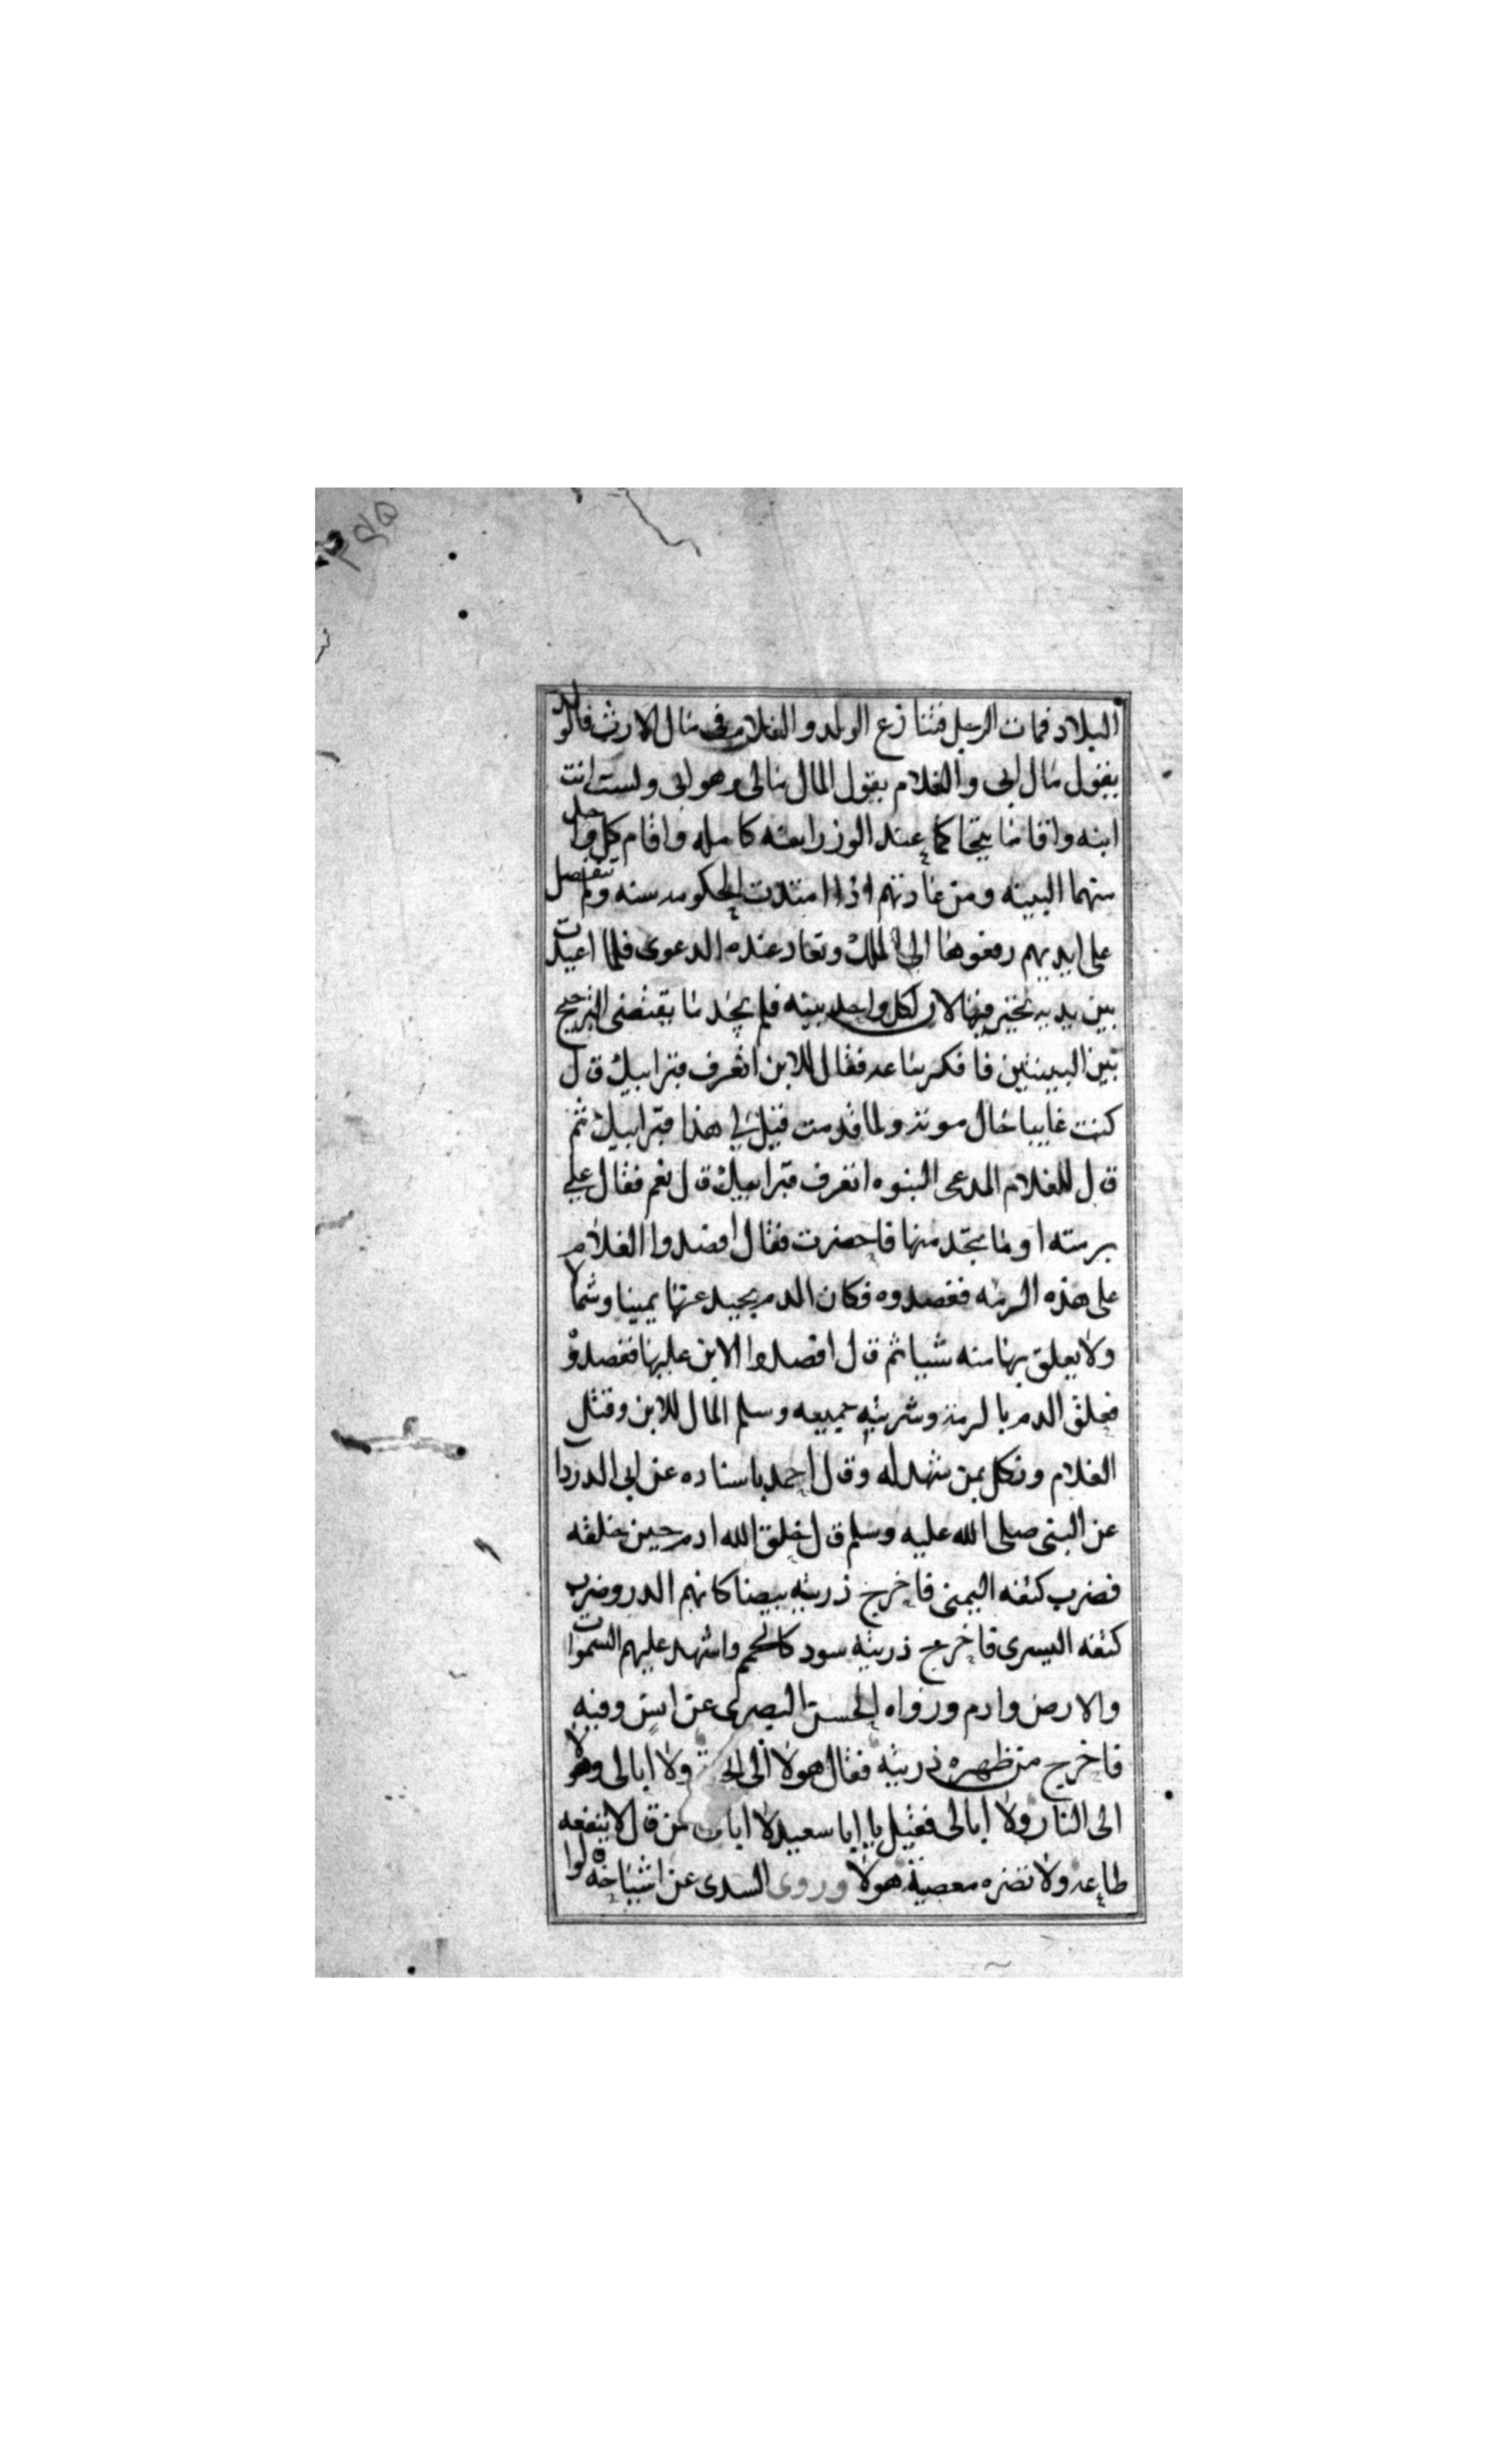 البلاد فمات الرجل فتنازع الولد والغلام في مال الارث فالولد
يقول مال ابي والغلام يقول المال مالي وهو ابي ولست انت
ابنه واقاما يتحاكما عند الوزرا بعنه كامله واقام كل واحد
منهما البينه ومن عادتهم اذا امتدت الحكومه سنه ولم تنفصل
على ايديهم رفعوها الى الملك وتعاد عنده الدعوى فلما اعيدت
بين يديه تحير فيها لان لكل واحد بينه فلم يجد ما يقتضى الترجيح
بين البينتين فافكر ساعه فقال للابن اتعرف قبر ابيك قال
كنت غايبا حال موته ولما قدمت قيل لي هذا قبر ابيك ثم
قال للغلام المدعى البنوه اتعرف قبر ابيك قال نعم فقال علي
برمته او ما تجد منها فاحضرت فقال افصدوا الغلام
على هذه الرمه ففصدوه فكان الدم يحيد عنها يمينا وشمالا
ولا يعلق بها منه شيا ثم قال افصدوا الابن عليها ففصدوه
فعلق الدم بالرمه وشربته جميعه وسلم المال للابن وقتل
الغلام ونكل بمن شهد له وقال احمد باسناده عن ابي الدردا
عن النبى صلى الله عليه وسلم قال خلق الله ادم حين خلقه
فضرب كتفه اليمنى فاخرج ذريته بيضا كانهم الدر وضرب
كتفه اليسرى فاخرج ذريته سود كالحمم واشهد عليهم السموات
والارض وادم ورواه الحسن البصرى عن انس وفيه
فاخرج من ظهره ذريته فقال هولا الى ولا ابالى وهولا
الى النار ولا ابالى فقيل يا ابا سعيد من قال لا ينفعه
طاعه ولا تضره معصية هولا وروى السدى عن اشياخه قالوا